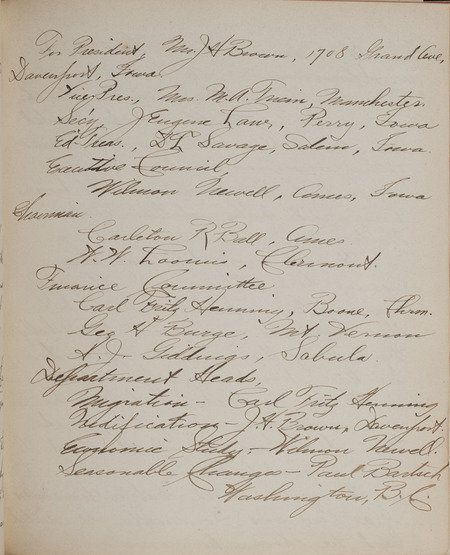 For President, Mr. J H Brown, 1708 Grand Ave,
Davenport, Iowa
Vice Pres., Mrs. M. A. Triem, Manchester.
Secy J Eugene Law, Perry, Iowa
Ed-Treas., D L Savage, Salem, Iowa.
Executive Council,
Wilmon Newell, Ames, Iowa
Chairman
Carleton R Ball, Ames
W. W. Loomis, Clermont.
Finance Committee
Carl Fritz Henning, Boone, Chrm.
Geo H Burge, Mt Vernon
A. J. Giddings, Sabula.
Department Heads,
Migration - Carl Fritz Henning
Nidification - J. H. Brown, Davenport.
Economic Study - Wilmon Newell.
Seasonable Changes - Paul Bartsch
Washington, D. C.